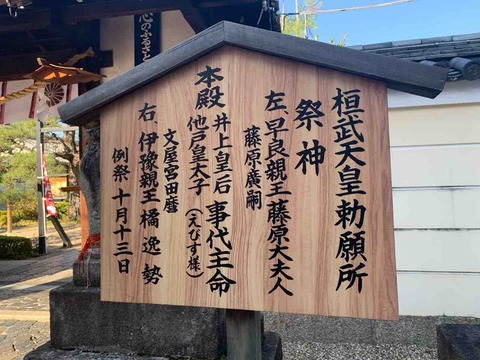 桓武天皇勅願所
祭神
左、早良親王藤原大夫人
藤原廣嗣
本殿 井上皇后 事代主命
他戸皇太子(えびす様)
文屋宮田麿
右、伊豫親王橘逸勢
例祭 十月十三日
心のふるさと